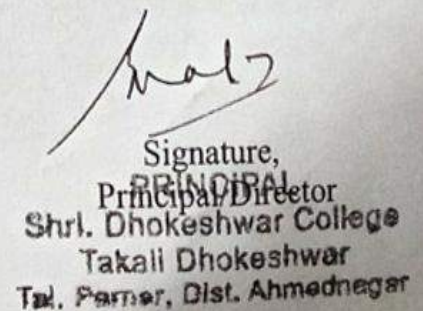 Signature,
PRINCIPAL
Principal/Director
Shri. Dhokeshwar College
Takali Dhokeshwar
Tal. Parner, Dist. Ahmednagar